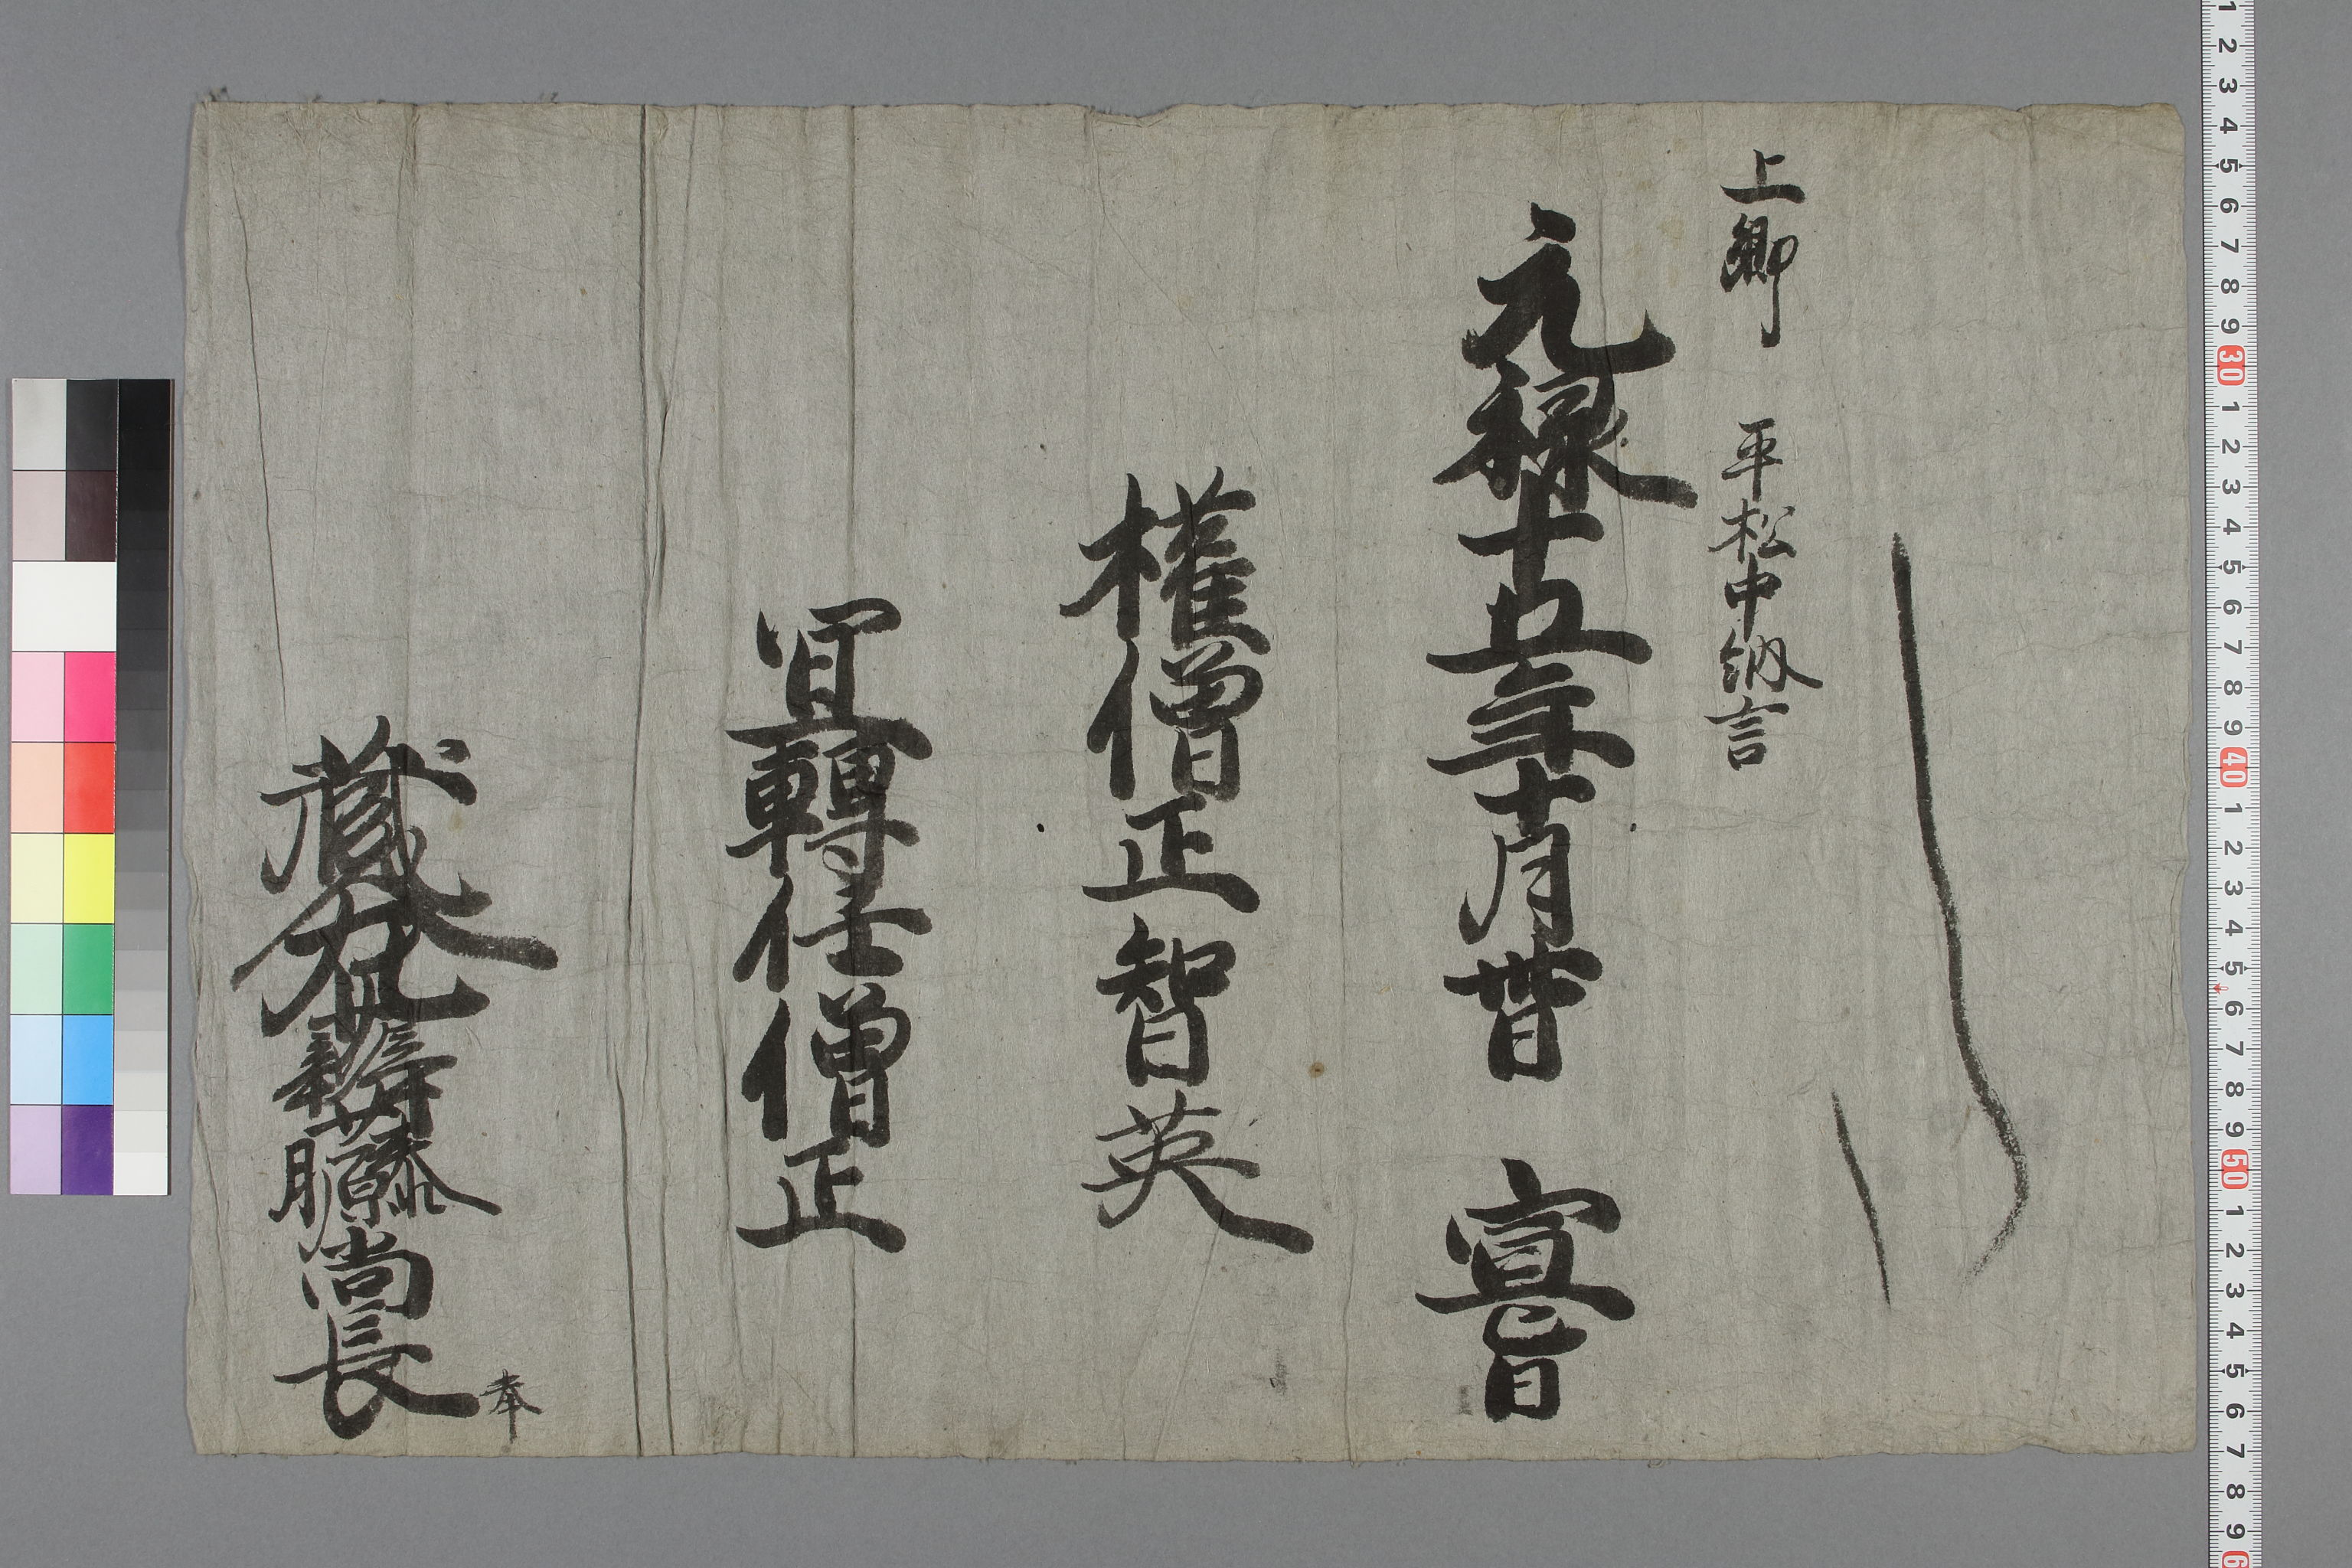 上卿 平松中納言
元禄十五年十月廿日 宣旨
權僧正智英
宜轉任僧正
蔵人右少辨藤原尚長奉